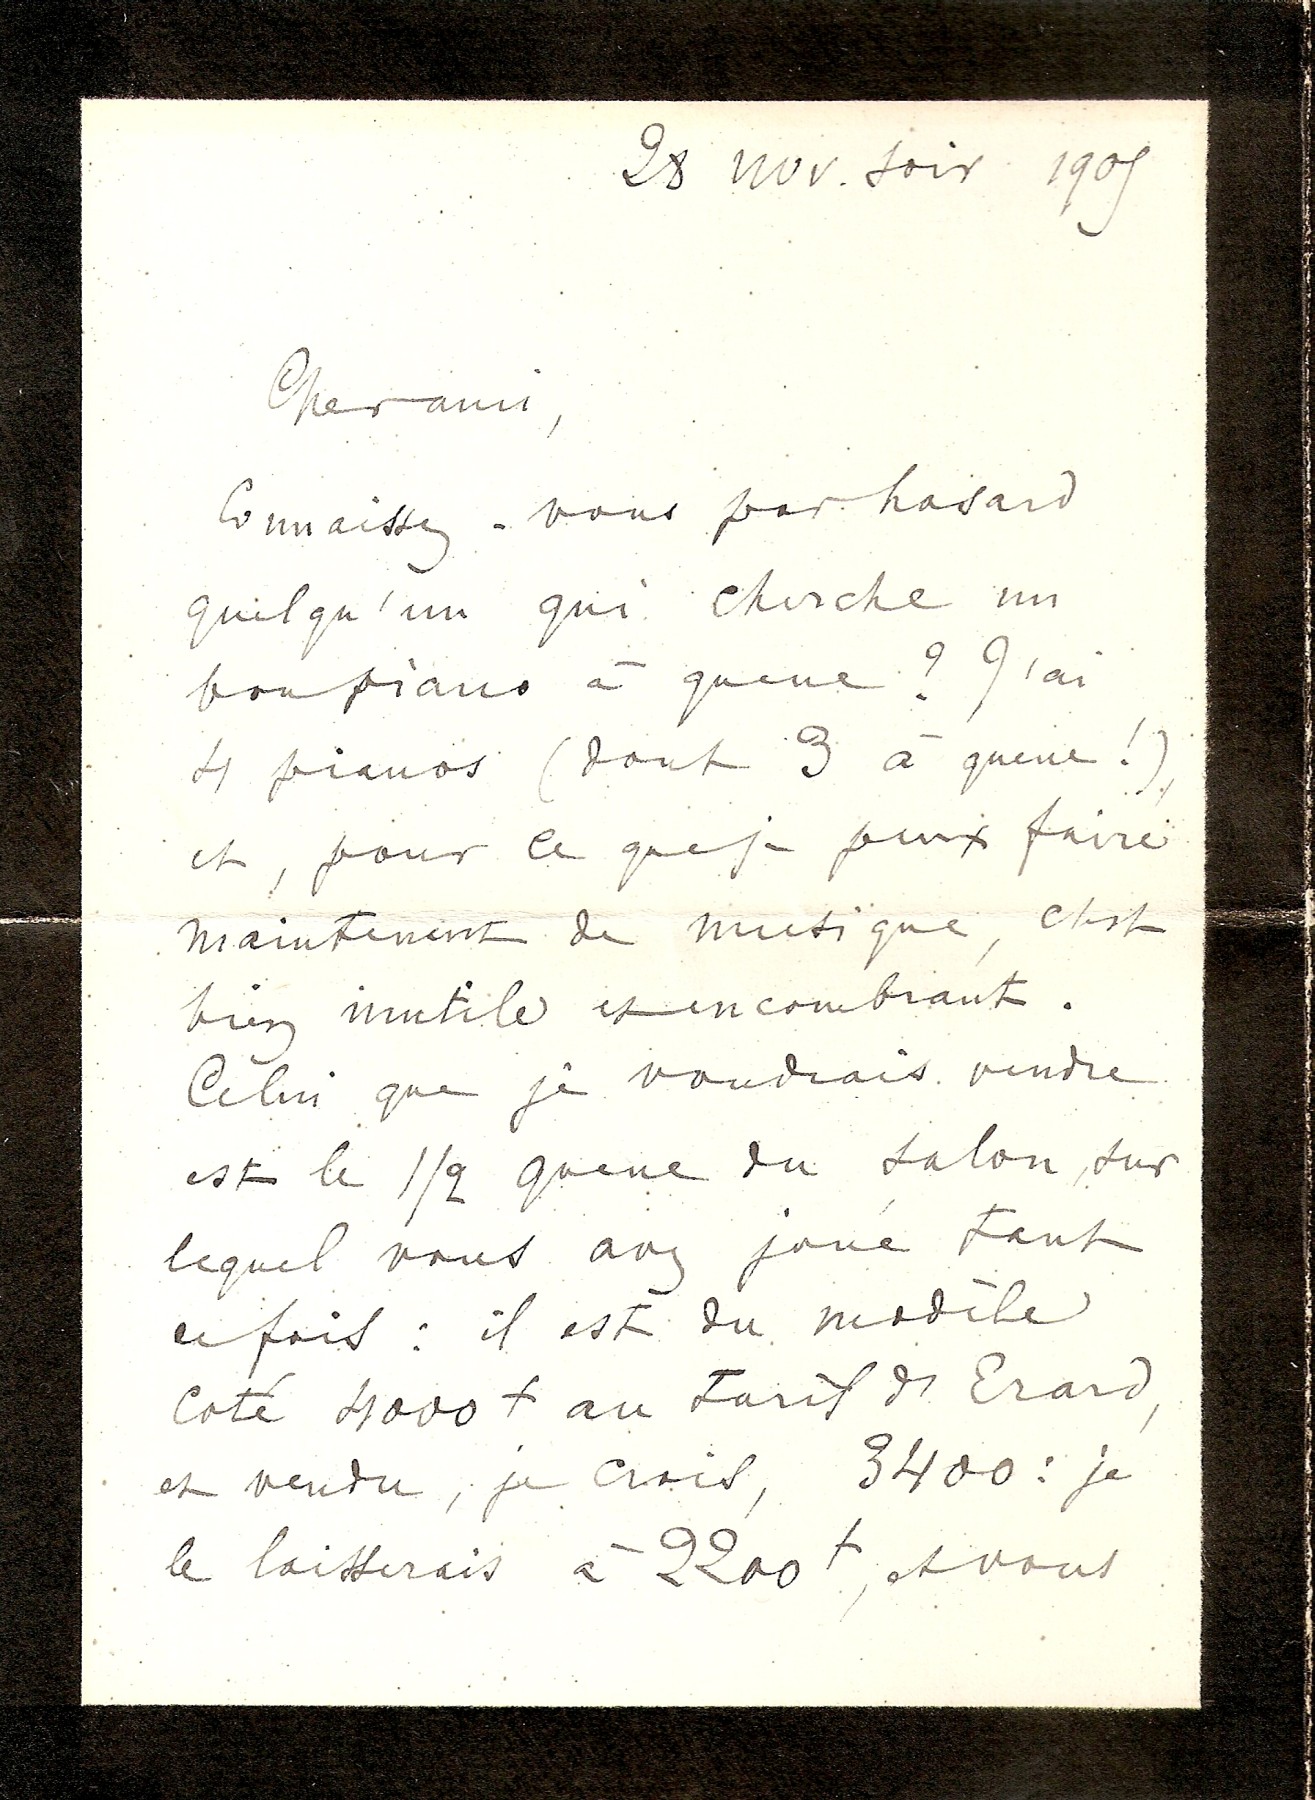 28 nov. soir 1905
Cher ami,
Connaissez-vous par hasard
quelqu'un qui cherche un
bon piano à queue ? J'ai
4 pianos (dont 3 à queue !),
et, pour ce que je puis faire
maintenant de musique, c'est
bien inutile et encombrant.
Celui que je voudrais vendre
est le 1/2 queue du salon, sur
lequel vous avez joué tant
de fois : il est du modèle
coté 4000 f au tarif d'Erard,
et vendu, je crois, 3400 : je
le laisserais à 2200 f, et vous